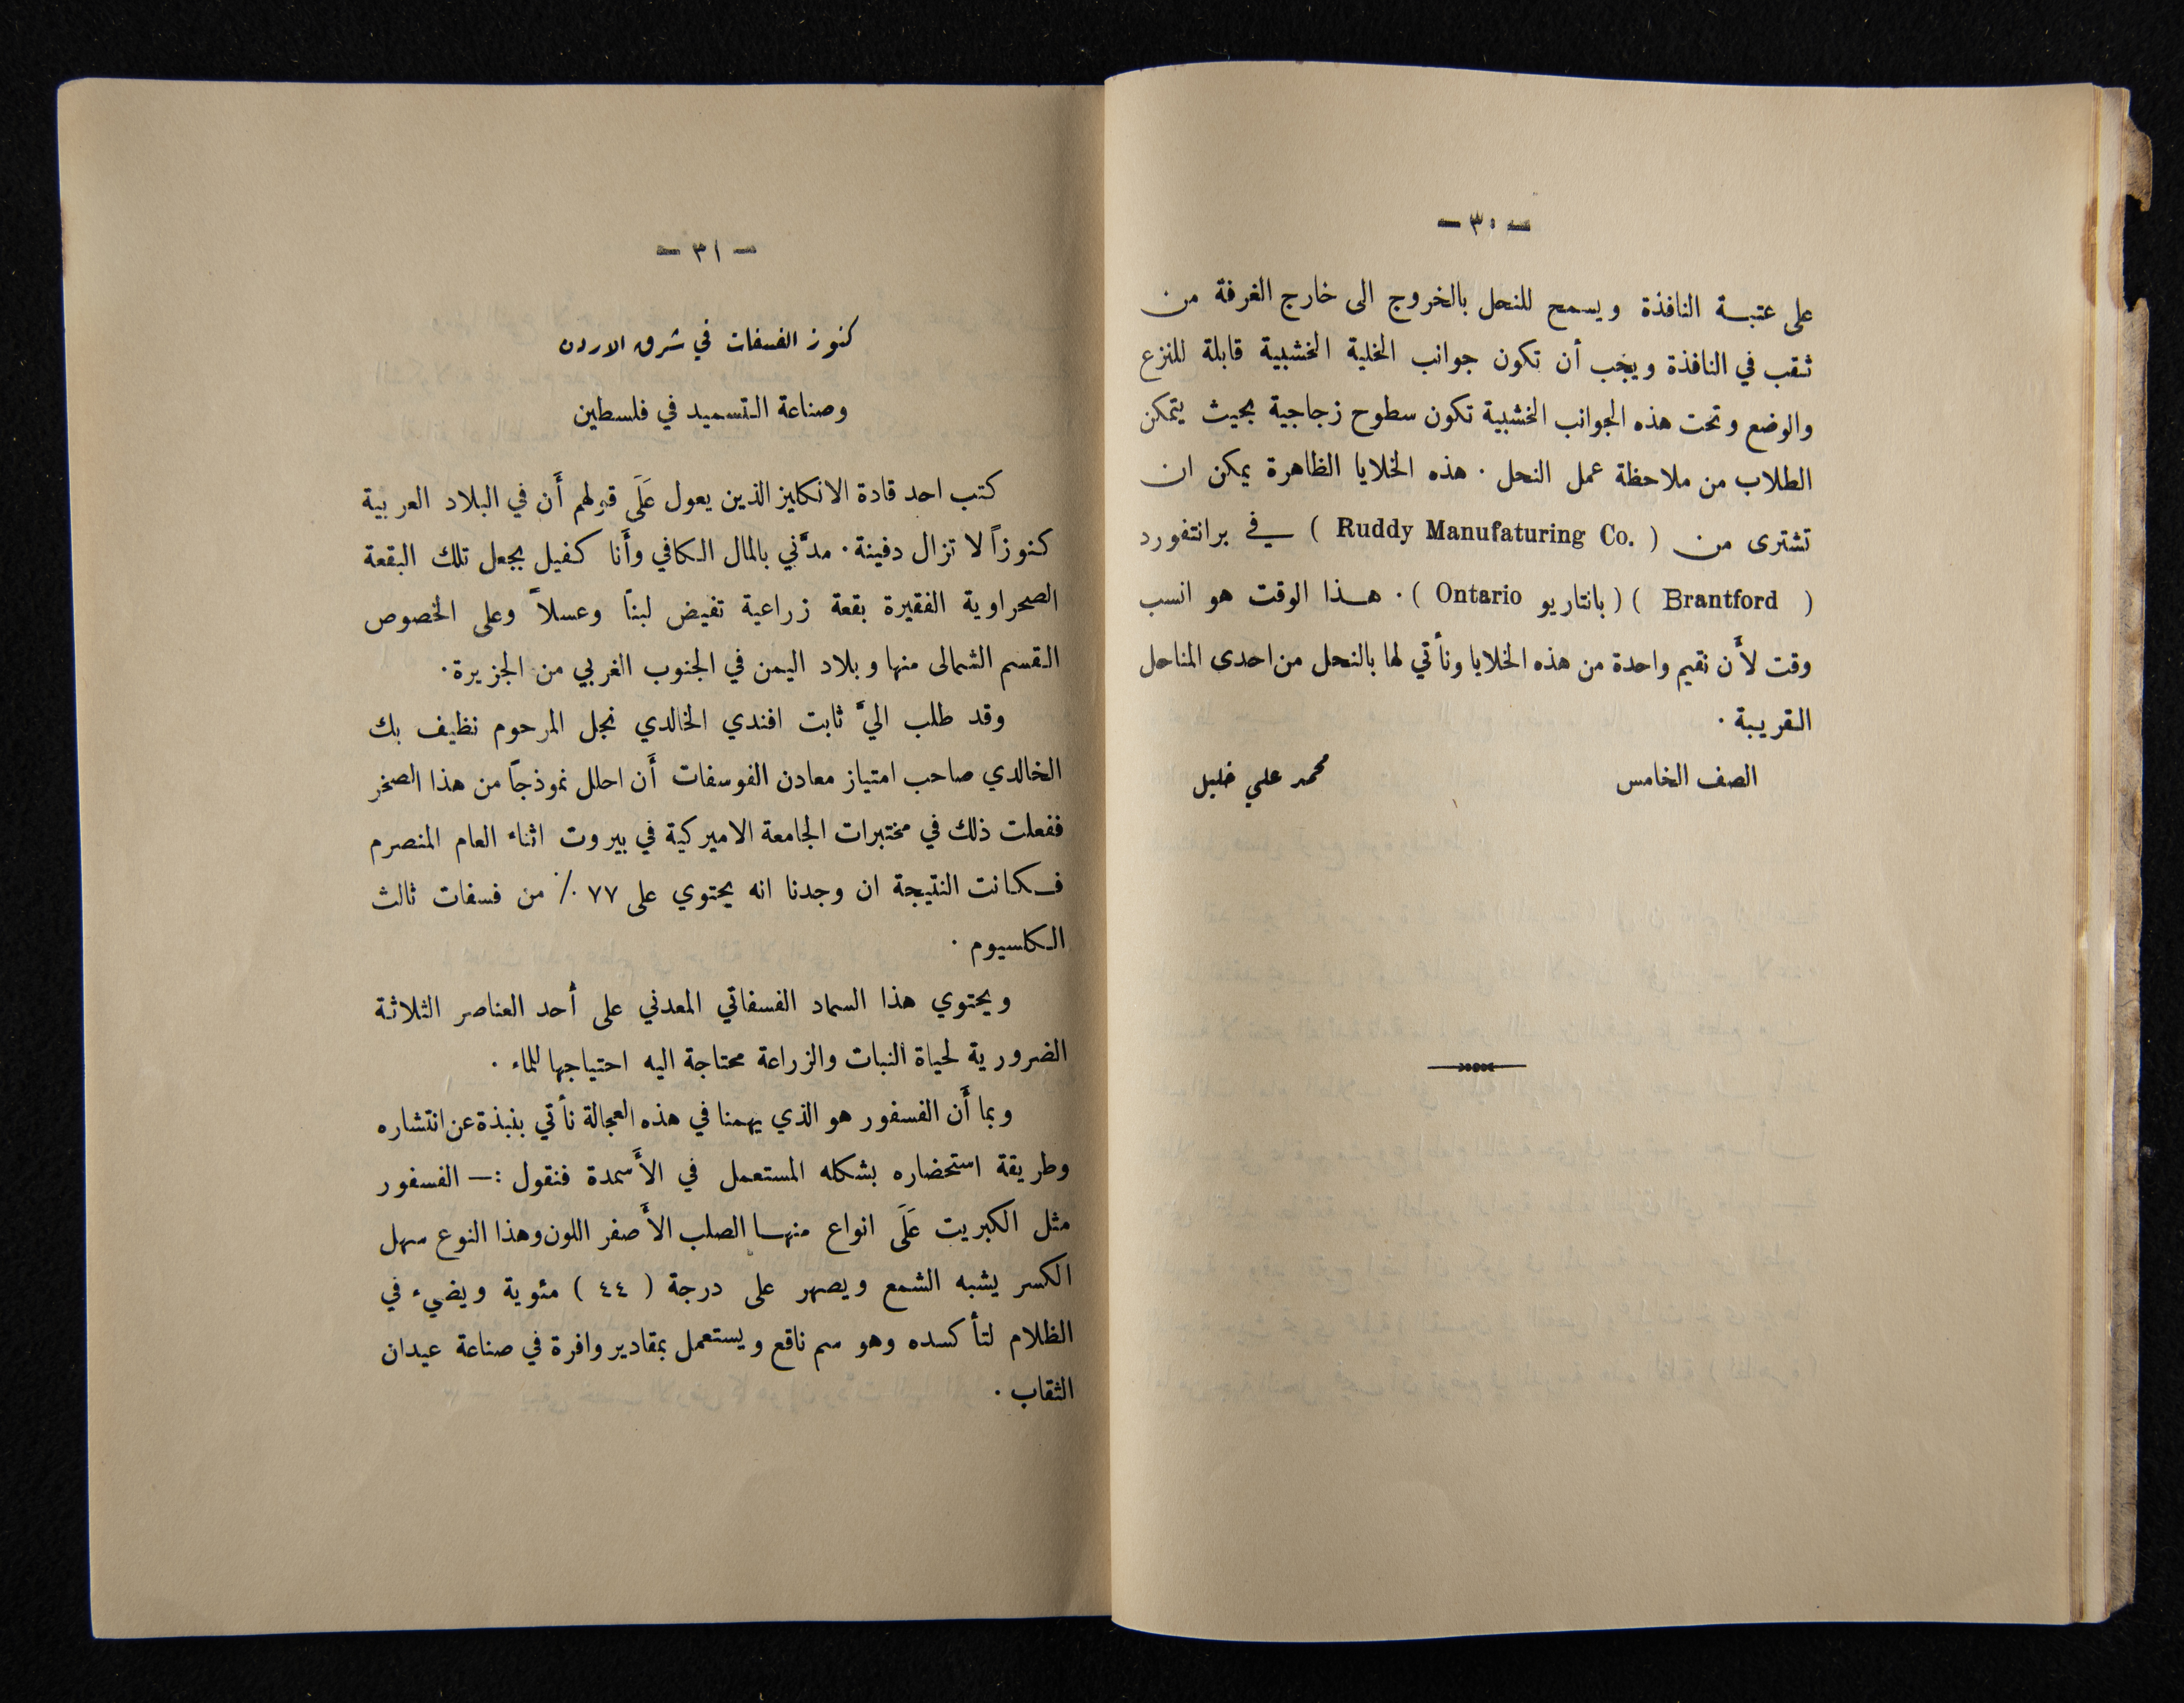 — ٣٠ —
على عتبة النافذة ويسمح للنحل بالخروج الى خارج الغرفة من
ثقب في النافذة ويجب أن تكون جوانب الخلية الخشبية قابلة للنزع
والوضع وتحت هذه الجوانب الخشبية تكون سطوح زجاجية بحيث يتمكن
الطلاب من ملاحظة عمل النحل . هذه الخلايا الظاهرة يمكن ان
تشترى من ( Ruddy Manufaturing Co. ) في برانتفورد
( Brantford ) ( بانتاريو Ontario ) . هذا الوقت هو انسب
وقت لأن نقيم واحدة من هذه الخلايا ونأتي لها بالنحل من احدى المناحل
القريبة .
الصف الخامس محمد علي خليل
— ٣١ —
كنوز الفسفات في شرق الاردن
وصناعة التسميد في فلسطين
كتب احد قادة الانكليز الذين يعول عَلَى قولهم أَن في البلاد العربية
كنوزاً لا تزال دفينة . مدَّني بالمال الكافي وأَنا كفيل بجعل تلك البقعة
الصحراوية الفقيرة بقعة زراعية تفيض لبناً وعسلاً وعلى الخصوص
القسم الشمالى منها وبلاد اليمن في الجنوب الغربي من الجزيرة .
وقد طلب اليَّ ثابت افندي الخالدي نجل المرحوم نظيف بك
الخالدي صاحب امتياز معادن الفوسفات أَن احلل نموذجاً من هذا الصخر
ففعلت ذلك في مختبرات الجامعة الاميركية في بيروت اثناء العام المنصرم
فكانت النتيجة ان وجدنا انه يحتوي على ٧٧ ٪ من فسفات ثالث
الكلسيوم .
ويحتوي هذا السماد الفسفاتي المعدني على أحد العناصر الثلاثة
الضرورية لحياة النبات والزراعة محتاجة اليه احتياجها للماء .
وبما أَن الفسفور هو الذي يهمنا في هذه العجالة نأتي بنبذة عن انتشاره
وطريقة استحضاره بشكله المستعمل في الأَسمدة فنقول :— الفسفور
مثل الكبريت عَلَى انواع منها الصلب الأَصفر اللون وهذا النوع سهل
الكسر يشبه الشمع ويصهر على درجة ( ٤٤ ) مئوية ويضيء في
الظلام لتأكسده وهو سم ناقع ويستعمل بمقادير وافرة في صناعة عيدان
الثقاب .